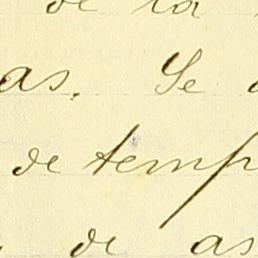 de la
as. Se
de temp
de as